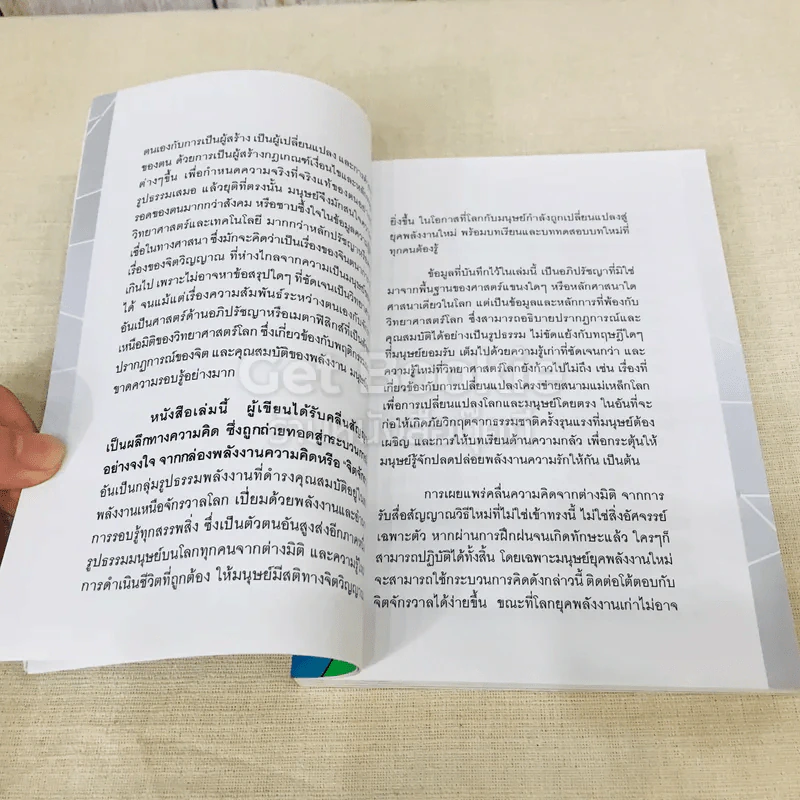 ตนเองกับการเป็นผู้สร้าง เป็นผู้เปลี่ยนแปลง
ของตน ด้วยการเป็นผู้สร้างกฎเกณฑ์เงื่อนไข
ต่างๆขึ้น เพื่อกำหนดความจริงที่จริงแท้ของตน
รูปธรรมเสมอ แล้วยุติที่ตรงนั้น มนุษย์จึงมักสนใจ
รอดของตนมากกว่าสังคม หรือซาบซึ้งใจในข้อมูลความ
วิทยาศาสตร์และเทคโนโลยี มากกว่าหลักปรัชญา
เชื่อในทางศาสนา ซึ่งมักจะคิดว่าเป็นเรื่องของจินตนาการ
เรื่องของจิตวิญญาณ ที่ห่างไกลจากความเป็นมนุษย์
เกินไป เพราะไม่อาจหาข้อสรุปใดๆ ที่ชัดเจนเป็นวิทยา
ได้ จนแม้แต่เรื่องความสัมพันธ์ระหว่างตนเองกับ
อันเป็นศาสตร์ด้านอภิปรัชญาหรือเมตาฟิสิกส์ที่เป็น
เหนือมิติของวิทยาศาสตร์โลก ซึ่งเกี่ยวข้องกับพฤติกรรม
ปรากฏการณ์ของจิต และคุณสมบัติของพลังงาน
ขาดความรอบรู้อย่างมาก
หนังสือเล่มนี้ ผู้เขียนได้รับคลื่น
เป็นผลึกทางความคิด ซึ่งถูกถ่ายทอดสู่กระบวน
อย่างจงใจ จากกล่องพลังงานความคิดหรือ "จิตจักร
อันเป็นกลุ่มรูปธรรมพลังงานที่ดำรงคุณสมบัติอยู่ใน
พลังงานเหนือจักรวาลโลก เปี่ยมด้วยพลังงานและ
การรอบรู้ทุกสรรพสิ่ง ซึ่งเป็นตัวตนอันสูงส่งอีกภาค
รูปธรรมมนุษย์บนโลกทุกคนจากต่างมิติ และความรู้
การดำเนินชีวิตที่ถูกต้อง ให้มนุษย์มีสติทางจิตวิญญาณ
ยิ่งขึ้น ในโอกาสที่โลกกับมนุษย์กำลังถูกเปลี่ยนแปลงสู่
ยุคพลังงานใหม่ พร้อมบทเรียนและบททดสอบบทใหม่ที่
ทุกคนต้องรู้
ข้อมูลที่บันทึกไว้ในเล่มนี้ เป็นอภิปรัชญาที่มิใช่
มาจากพื้นฐานของศาสตร์แขนงใดๆ หรือหลักศาสนาใด
ศาสนาเดียวในโลก แต่เป็นข้อมูลและหลักการที่พ้องกับ
วิทยาศาสตร์โลก ซึ่งสามารถอธิบายปรากฏการณ์และ
คุณสมบัติได้อย่างเป็นรูปธรรม ไม่ขัดแย้งกับทฤษฎีใดๆ
ที่มนุษย์ยอมรับ เต็มไปด้วยความรู้เก่าที่ชัดเจนกว่า และ
ความรู้ใหม่ที่วิทยาศาสตร์โลกยังก้าวไปไม่ถึง เช่น เรื่องที่
เกี่ยวข้องกับการเปลี่ยนแปลงโครงข่ายสนามแม่เหล็กโลก
เพื่อการเปลี่ยนแปลงโลกและมนุษย์โดยตรง ในอันที่จะ
ก่อให้เกิดภัยวิกฤตจากธรรมชาติครั้งรุนแรงที่มนุษย์ต้อง
เผชิญ และการให้บทเรียนด้านความกลัว เพื่อกระตุ้นให้
มนุษย์รู้จักปลดปล่อยพลังงานความรักให้กัน เป็นต้น
การเผยแพร่คลื่นความคิดจากต่างมิติ จากการ
รับสื่อสัญญาณวิธีใหม่ที่ไม่ใช่เข้าทรงนี้ ไม่ใช่สิ่งอัศจรรย์
เฉพาะตัว หากผ่านการฝึกฝนจนเกิดทักษะแล้ว ใครๆก็
สามารถปฏิบัติได้ทั้งสิ้น โดยเฉพาะมนุษย์ยุคพลังงานใหม่
จะสามารถใช้กระบวนการคิดดังกล่าวนี้ ติดต่อโต้ตอบกับ
จิตจักรวาลได้ง่ายขึ้น ขณะที่โลกยุคพลังงานเก่าไม่อาจ